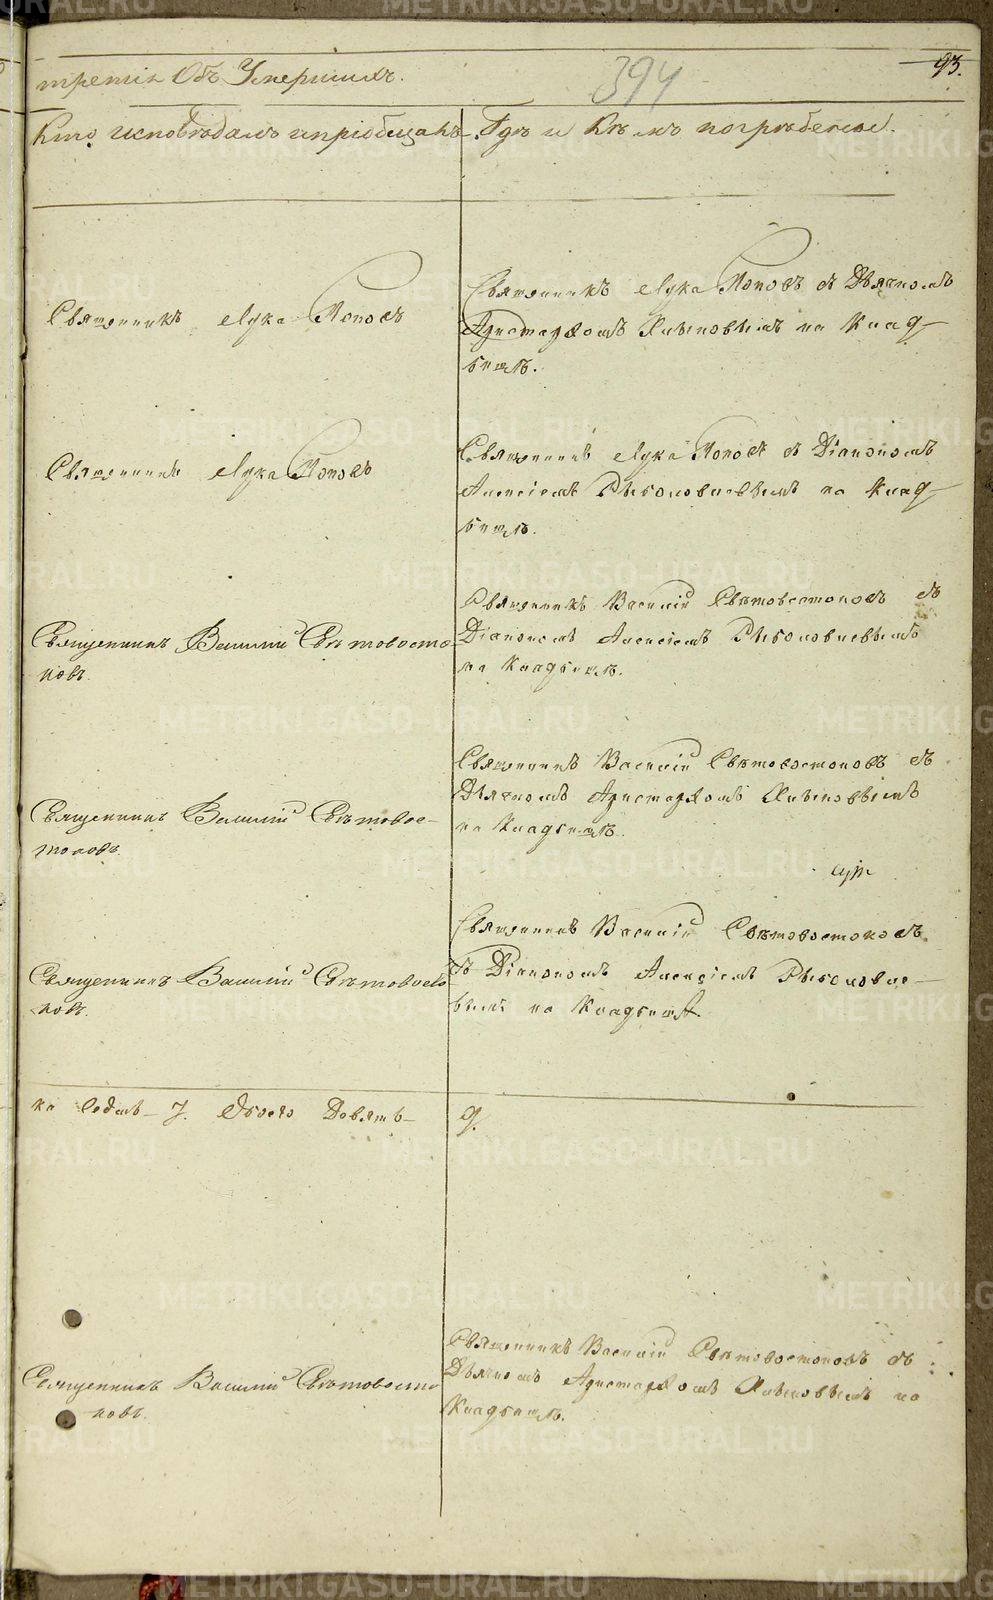 третія Объ Умершихъ.
394
93.
Кто исповѣдалъ и пріобщалъ.
Гдѣ и Кѣмъ погребены.
Священникъ Лука Поповъ
Священникъ Лука Поповъ съ Дьячкомъ
Аристархомъ на Клад-
бищѣ.
Священникъ Лука Поповъ
Священникъ Лука Поповъ съ Діакономъ
Алексіемъ на Клад-
бищѣ.
Священникъ Василій Свѣтовосто-
ковъ.
Священникъ Василій Свѣтовостоковъ съ
Діакономъ Алексіемъ
на Кладбищѣ.
Священникъ Василій Свѣтовос-
токовъ.
Священникъ Василій Свѣтовостоковъ съ
Дьячкомъ Аристархомъ
на Кладбищѣ.
Священникъ Василій Свѣтовосто
ковъ.
Священникъ Василій Свѣтовостоковъ
съ Діакономъ Алексіемъ
на Кладбищѣ.
ка Седмь 7. Обоего Девять 9.
Священникъ Василій Свѣтовосто
ковъ.
Священникъ Василій Свѣтовостоковъ съ
Дьячкомъ Аристархомъ на
Кладбищѣ.
METRIKI.GASO-URAL.RU